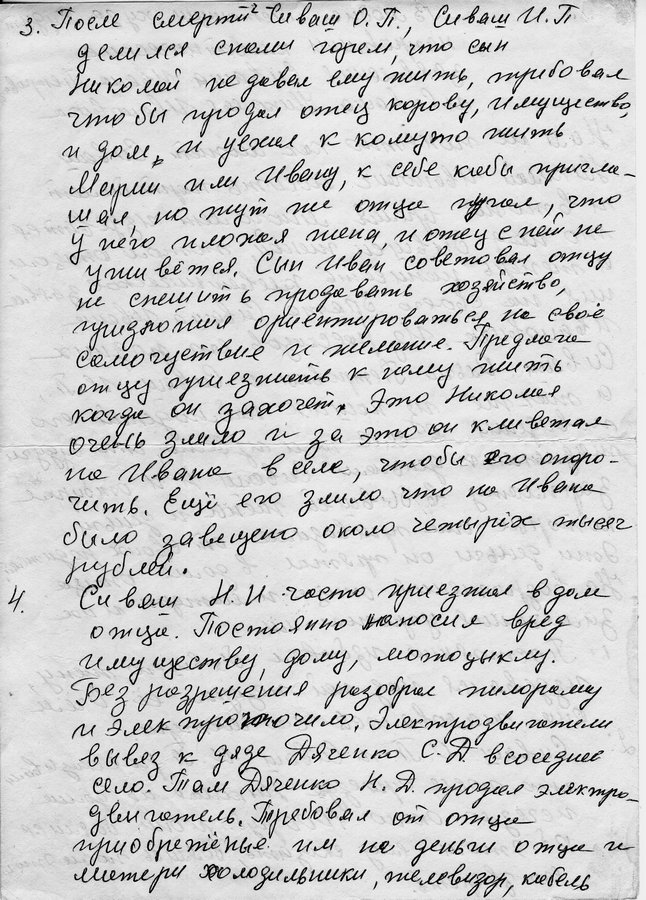 3. После смерти Сиваш О.П., Сиваш И.П
делился своим горем, что сын
Николай не давал ему жить, требовал
чтобы продал отец корову, имущество,
и дом, и уехал к кому то жить
Марии или Ивану, к себе кабы пригла-
шал, но тут же отца пугал, что
у него плохая жена, и отец с ней не
уживётся. Сын Иван советовал отцу
не спешить продавать хозяйство,
ориентироваться на своё
самочуствие и желание. Предлага
отцу приезжать к нему жить
когда он захочет. Это Николая
очень злило и за это он клеветал
на Ивана в селе, чтобы его опоро-
чить. Ещё его злило что на Ивана
было завещено около четырёх тысяч
рублей.
4. Сиваш Н.И часто приезжал в дом
отца. Постоянно наносил вред
имуществу, дому, мотоцыклу.
Без разрешения разобрал пилораму
и электроточило. Электродвигатели
вывез к дяде Дяченко С.Д. в соседнее
село. Там Дяченко Н.Д. продал электро-
двигатель. Требовал от отца
приобретёные им на деньги отца и
матери холодильники, телевизор, кабель